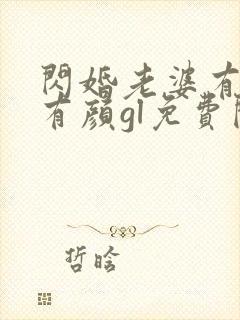 閃婚老婆有
有顔gl免費
哲晗